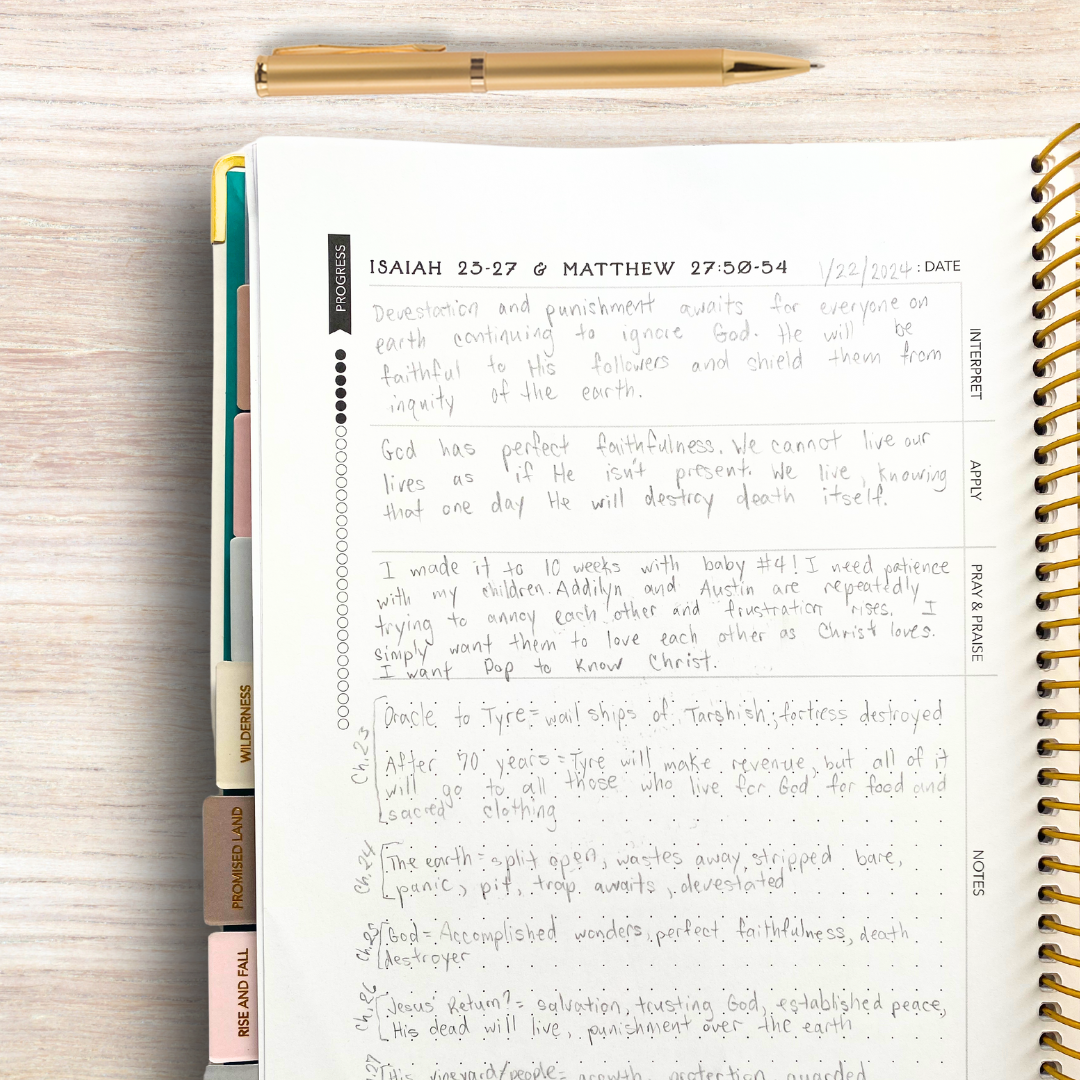 PROGRESS
ISAIAH 23-27 & MATTHEW 27:50-54
1/22/2024 : DATE
Devestation and punishment awaits for everyone on
earth continuing to ignore God. He will be
faithful to His followers and shield them from
inquity of the earth.
INTERPRET
God has perfect faithfulness. We cannot live our
lives as if He isn't present. We live, knowing
that one day He will destroy death itself.
APPLY
I made it to 10 weeks with baby #4! I need patience
with my children. Addilyn and Austin are repeatedly
trying to annoy each other and frustration rises. I
simply want them to love each other as Christ loves.
I want Pop to know Christ.
PRAY & PRAISE
Ch. 23
Oracle to Tyre = wail ships of Tarshish; fortress destroyed
After 70 years = Tyre will make revenue, but all of it
will go to all those who live for God for food and
sacred clothing
Ch. 24
The earth = split open, wastes away, stripped bare,
panic, pit, trap awaits, devestated
NOTES
Ch. 25
God = Accomplished wonders, perfect faithfulness, death
destroyer
Ch. 26
Jesus' Return? = salvation, trusting God, established peace,
His dead will live, punishment over the earth
His vineyard/people = growth, protection, guarded
WILDERNESS
PROMISED LAND
RISE AND FALL